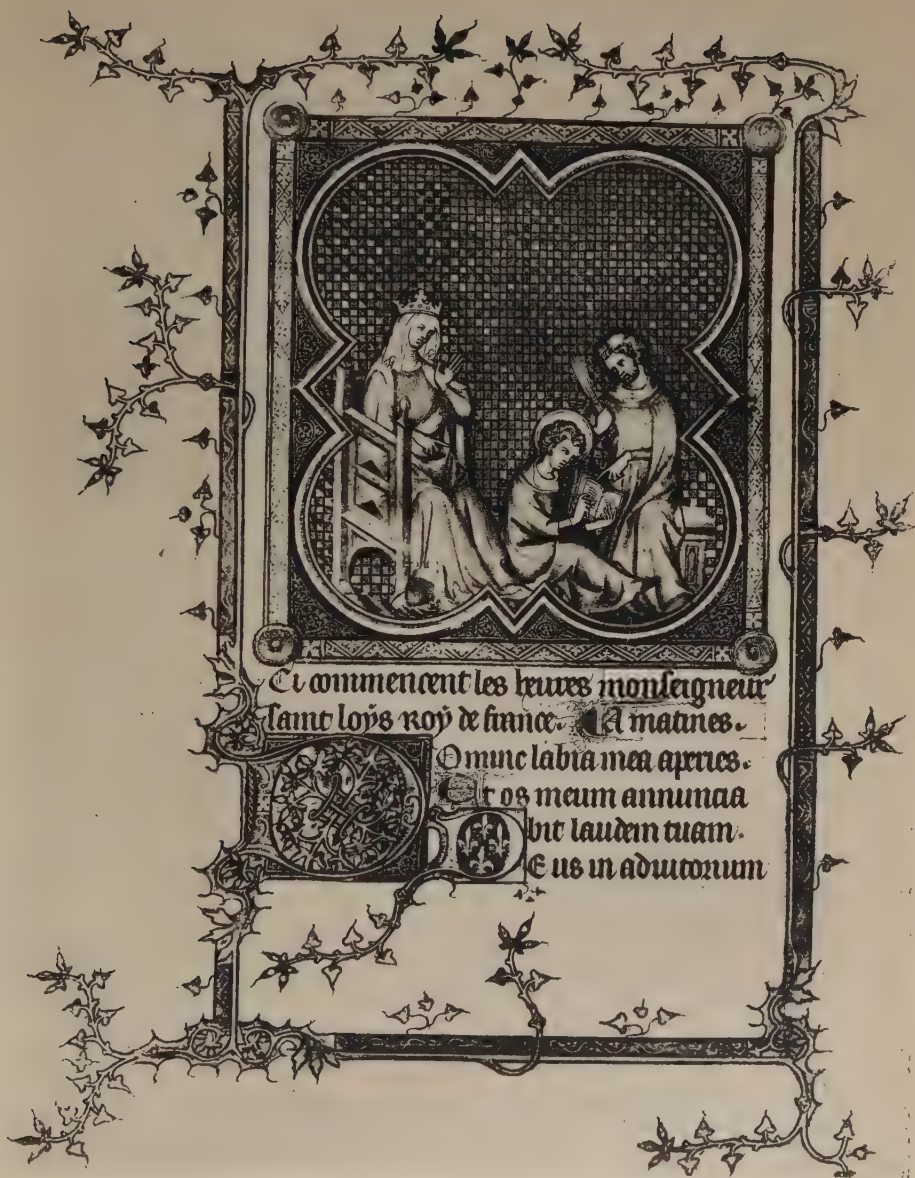 Ci commencent les heures monseigneur
saint loÿs roÿ de france. A matines.
Domine labia mea aperies.
Et os meum annuncia
bit laudem tuam.
DEus in adiutorium